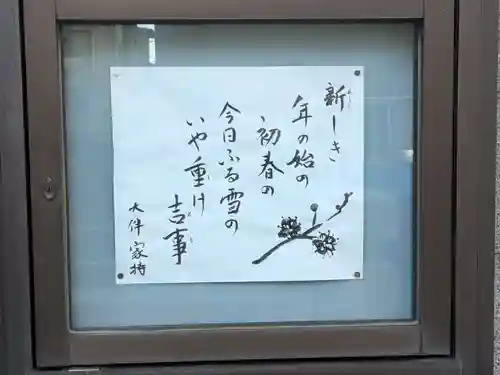 新しき
年の始の
初春の
今日ふる雪の
いや重け
吉事
大伴家持